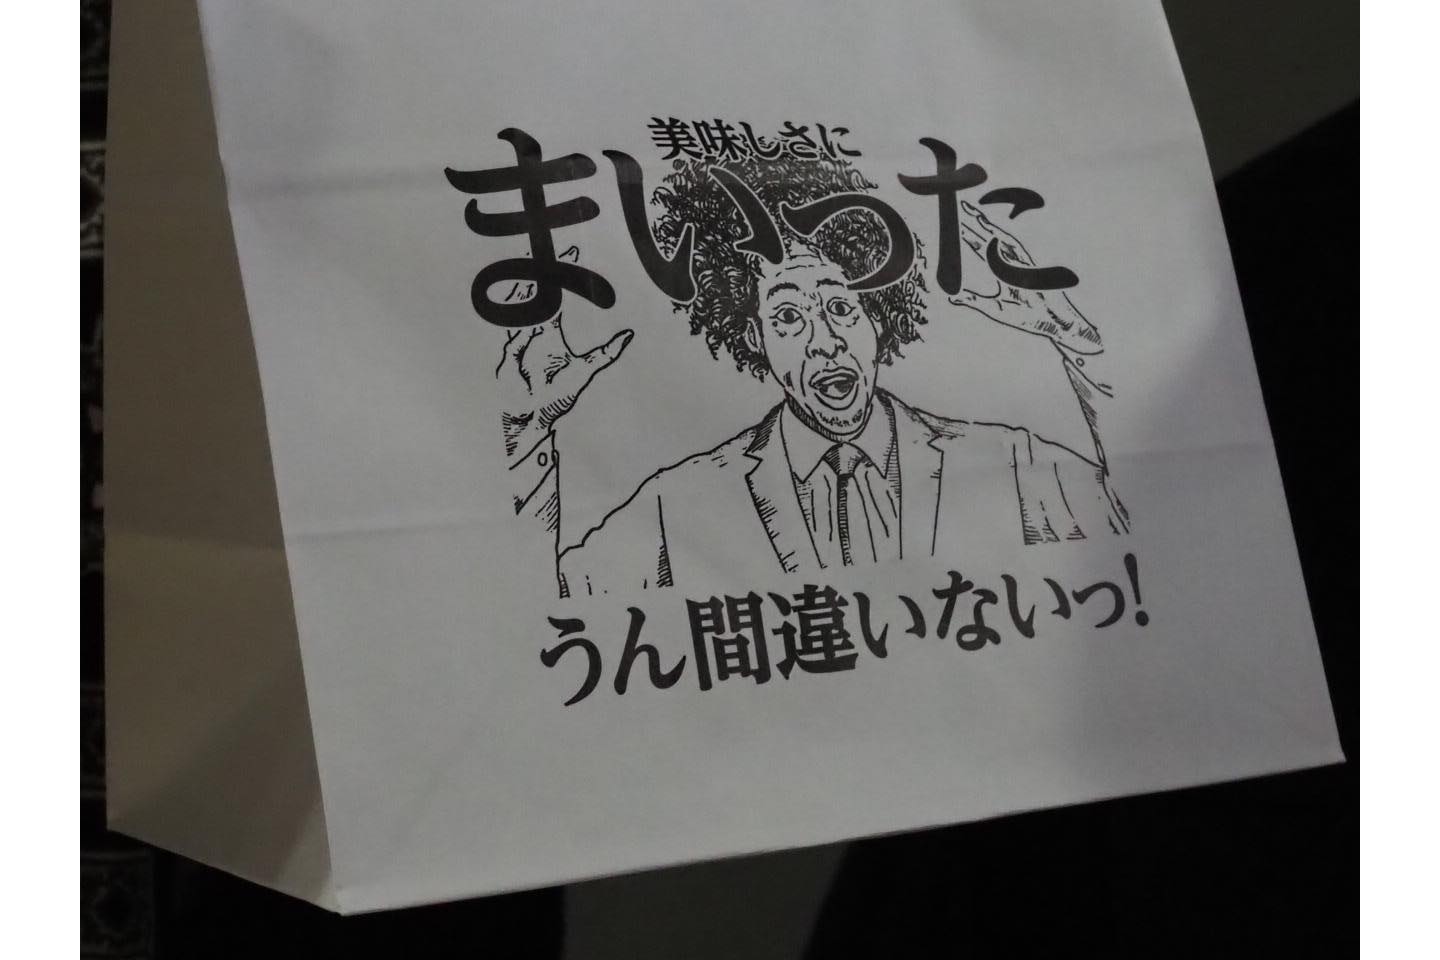 美味しさに
まいった
うん間違いないっ!